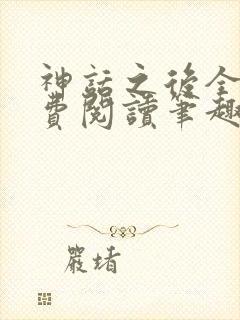 神話之後全
費閱讀筆趣
嚴堵